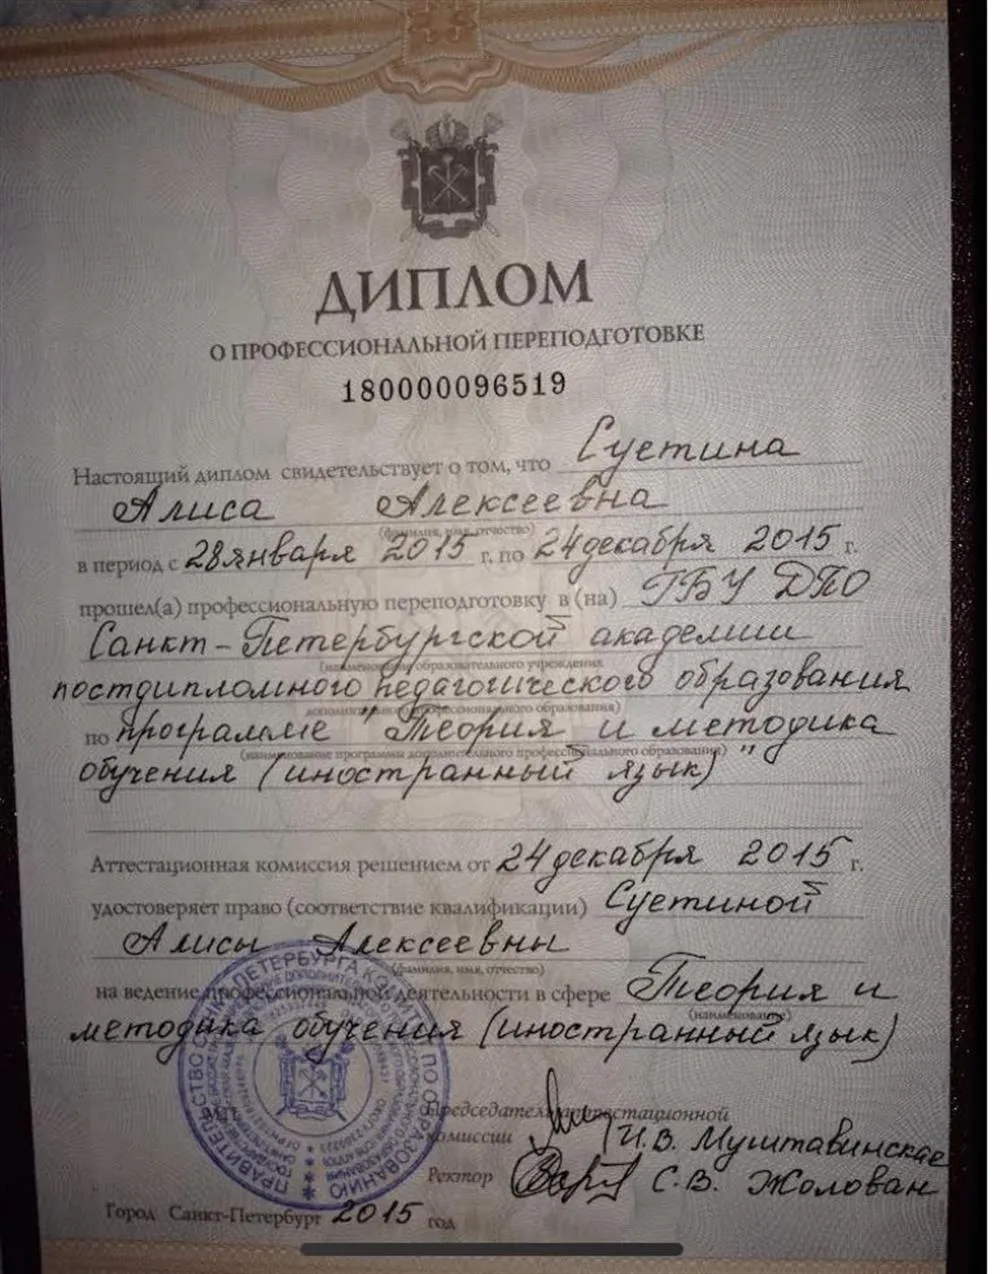 ДИПЛОМ
О ПРОФЕССИОНАЛЬНОЙ ПЕРЕПОДГОТОВКЕ
180000096519
Настоящий диплом свидетельствует о том, что Суетина
Алиса Алексеевна
(фамилия, имя, отчество)
в период с 28 января 2015 г. по 24 декабря 2015 г.
прошел(а) профессиональную переподготовку в (на) ГБУ ДПО
Санкт-Петербургской академии
(наименование образовательного учреждения
постдипломного педагогического образования
дополнительного профессионального образования)
по программе "Теория и методика
(наименование программы дополнительного профессионального образования)
обучения (иностранный язык)"
Аттестационная комиссия решением от 24 декабря 2015 г.
удостоверяет право (соответствие квалификации) Суетиной
Алисы Алексеевны
(фамилия, имя, отчество)
на ведение профессиональной деятельности в сфере Теория и
(наименование)
методика обучения (иностранный язык)
ПРАВИТЕЛЬСТВО САНКТ-ПЕТЕРБУРГА КОМИТЕТ ПО ОБРАЗОВАНИЮ
Председатель аттестационной
комиссии И.В. Муштавинская
Ректор С.В. Жолован
Город Санкт-Петербург 2015 год